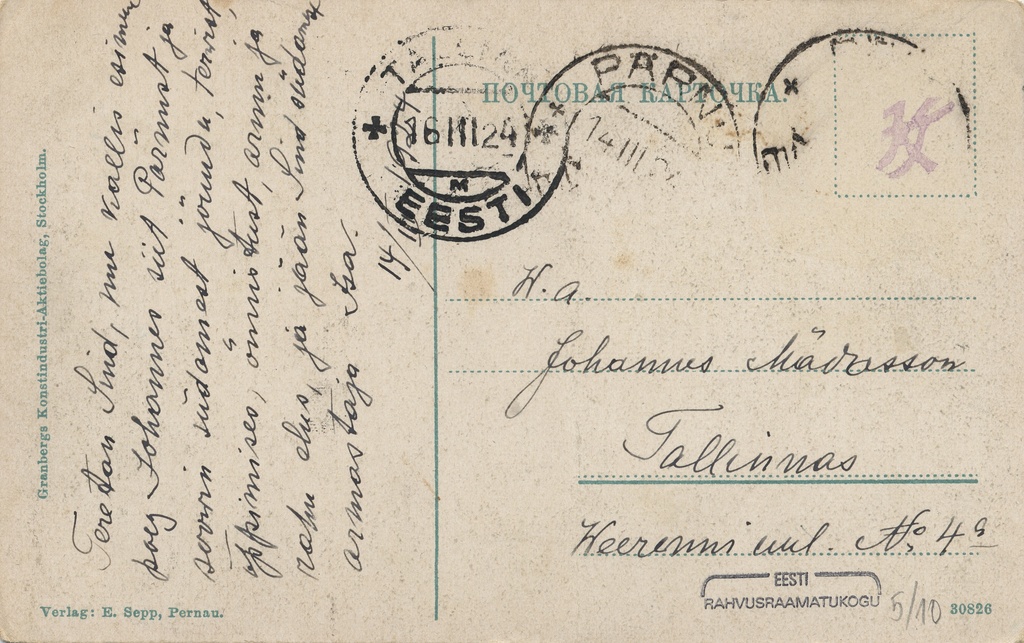 Granbergs Konstindustri-Aktiebolag, Stockholm.
Teretan Sind, mu kallis esimen
poeg Johannes siit Pärnust ja
soovin südamest jõuudu, tervist,
õppimises, õnnistust, armu ja
rahu elus, ja jään Sind südamest
armastaja Isa.
14/III 1924
Verlag: E. Sepp, Pernau.
TALLINN
16 III 24
M
EESTI
PÄRNU
14 III 24
ПОЧТОВАЯ КАРТОЧКА.
W. a.
Johannes Mädasson
Tallinnas
Weerenni uul. No 4a
EESTI
RAHVUSRAAMATUKOGU
5/10
30826